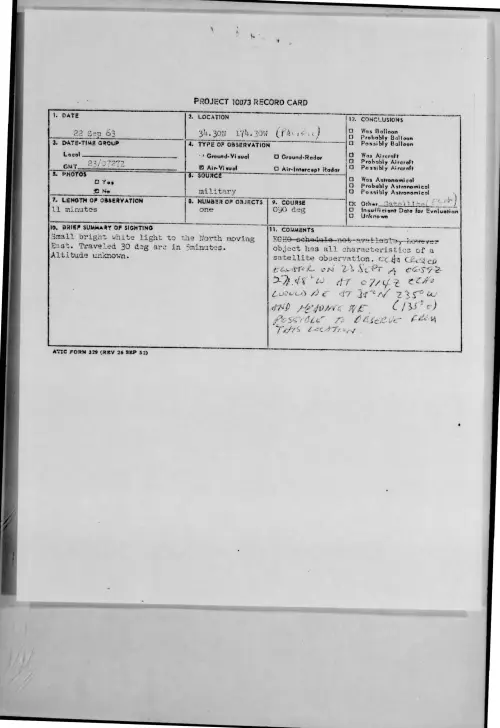 PROJECT 10073 RECORD CARD
1. DATE
22 Sep 63
2. LOCATION
34.30N 174.30W (Pacific)
12. CONCLUSIONS
Was Balloon
Probably Balloon
Possibly Balloon
Was Aircraft
Probably Aircraft
Possibly Aircraft
Was Astronomical
Probably Astronomical
Possibly Astronomical
Other Satellite (Echo)
Insufficient Data for Evaluation
Unknown
3. DATE-TIME GROUP
Local
GMT 23/0727Z
4. TYPE OF OBSERVATION
Ground-Visual
Ground-Radar
Air-Visual
Air-Intercept Radar
5. PHOTOS
Yes
No
6. SOURCE
military
7. LENGTH OF OBSERVATION
11 minutes
8. NUMBER OF OBJECTS
one
9. COURSE
090 deg
10. BRIEF SUMMARY OF SIGHTING
Small bright white light to the North moving
East. Traveled 30 deg arc in minutes.
Altitude unknown.
11. COMMENTS
ECHO schedule not available, however
object has all characteristics of a
satellite observation. CROSSED
EQUATOR ON 23 SEPT
AT 0714Z ECHO
WOULD BE AT 35°N 235°W
AND HEADING NE. (135°E)
POSSIBLE TO OBSERVE FROM
THIS LOCATION.
ATIC FORM 329 (REV 26 SEP 52)